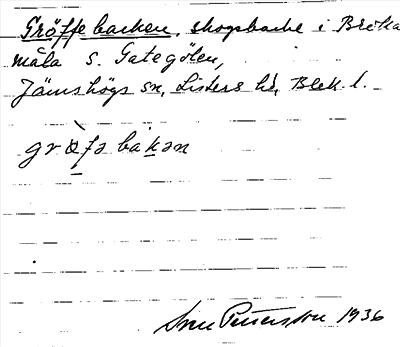 Gröffebacken, skogsbacke i Bröka
måla S. Gategölen,
Jämshögs sn, Listers hd, Blek. l.
grö̀fə bakən
Sven Pettersson 1936